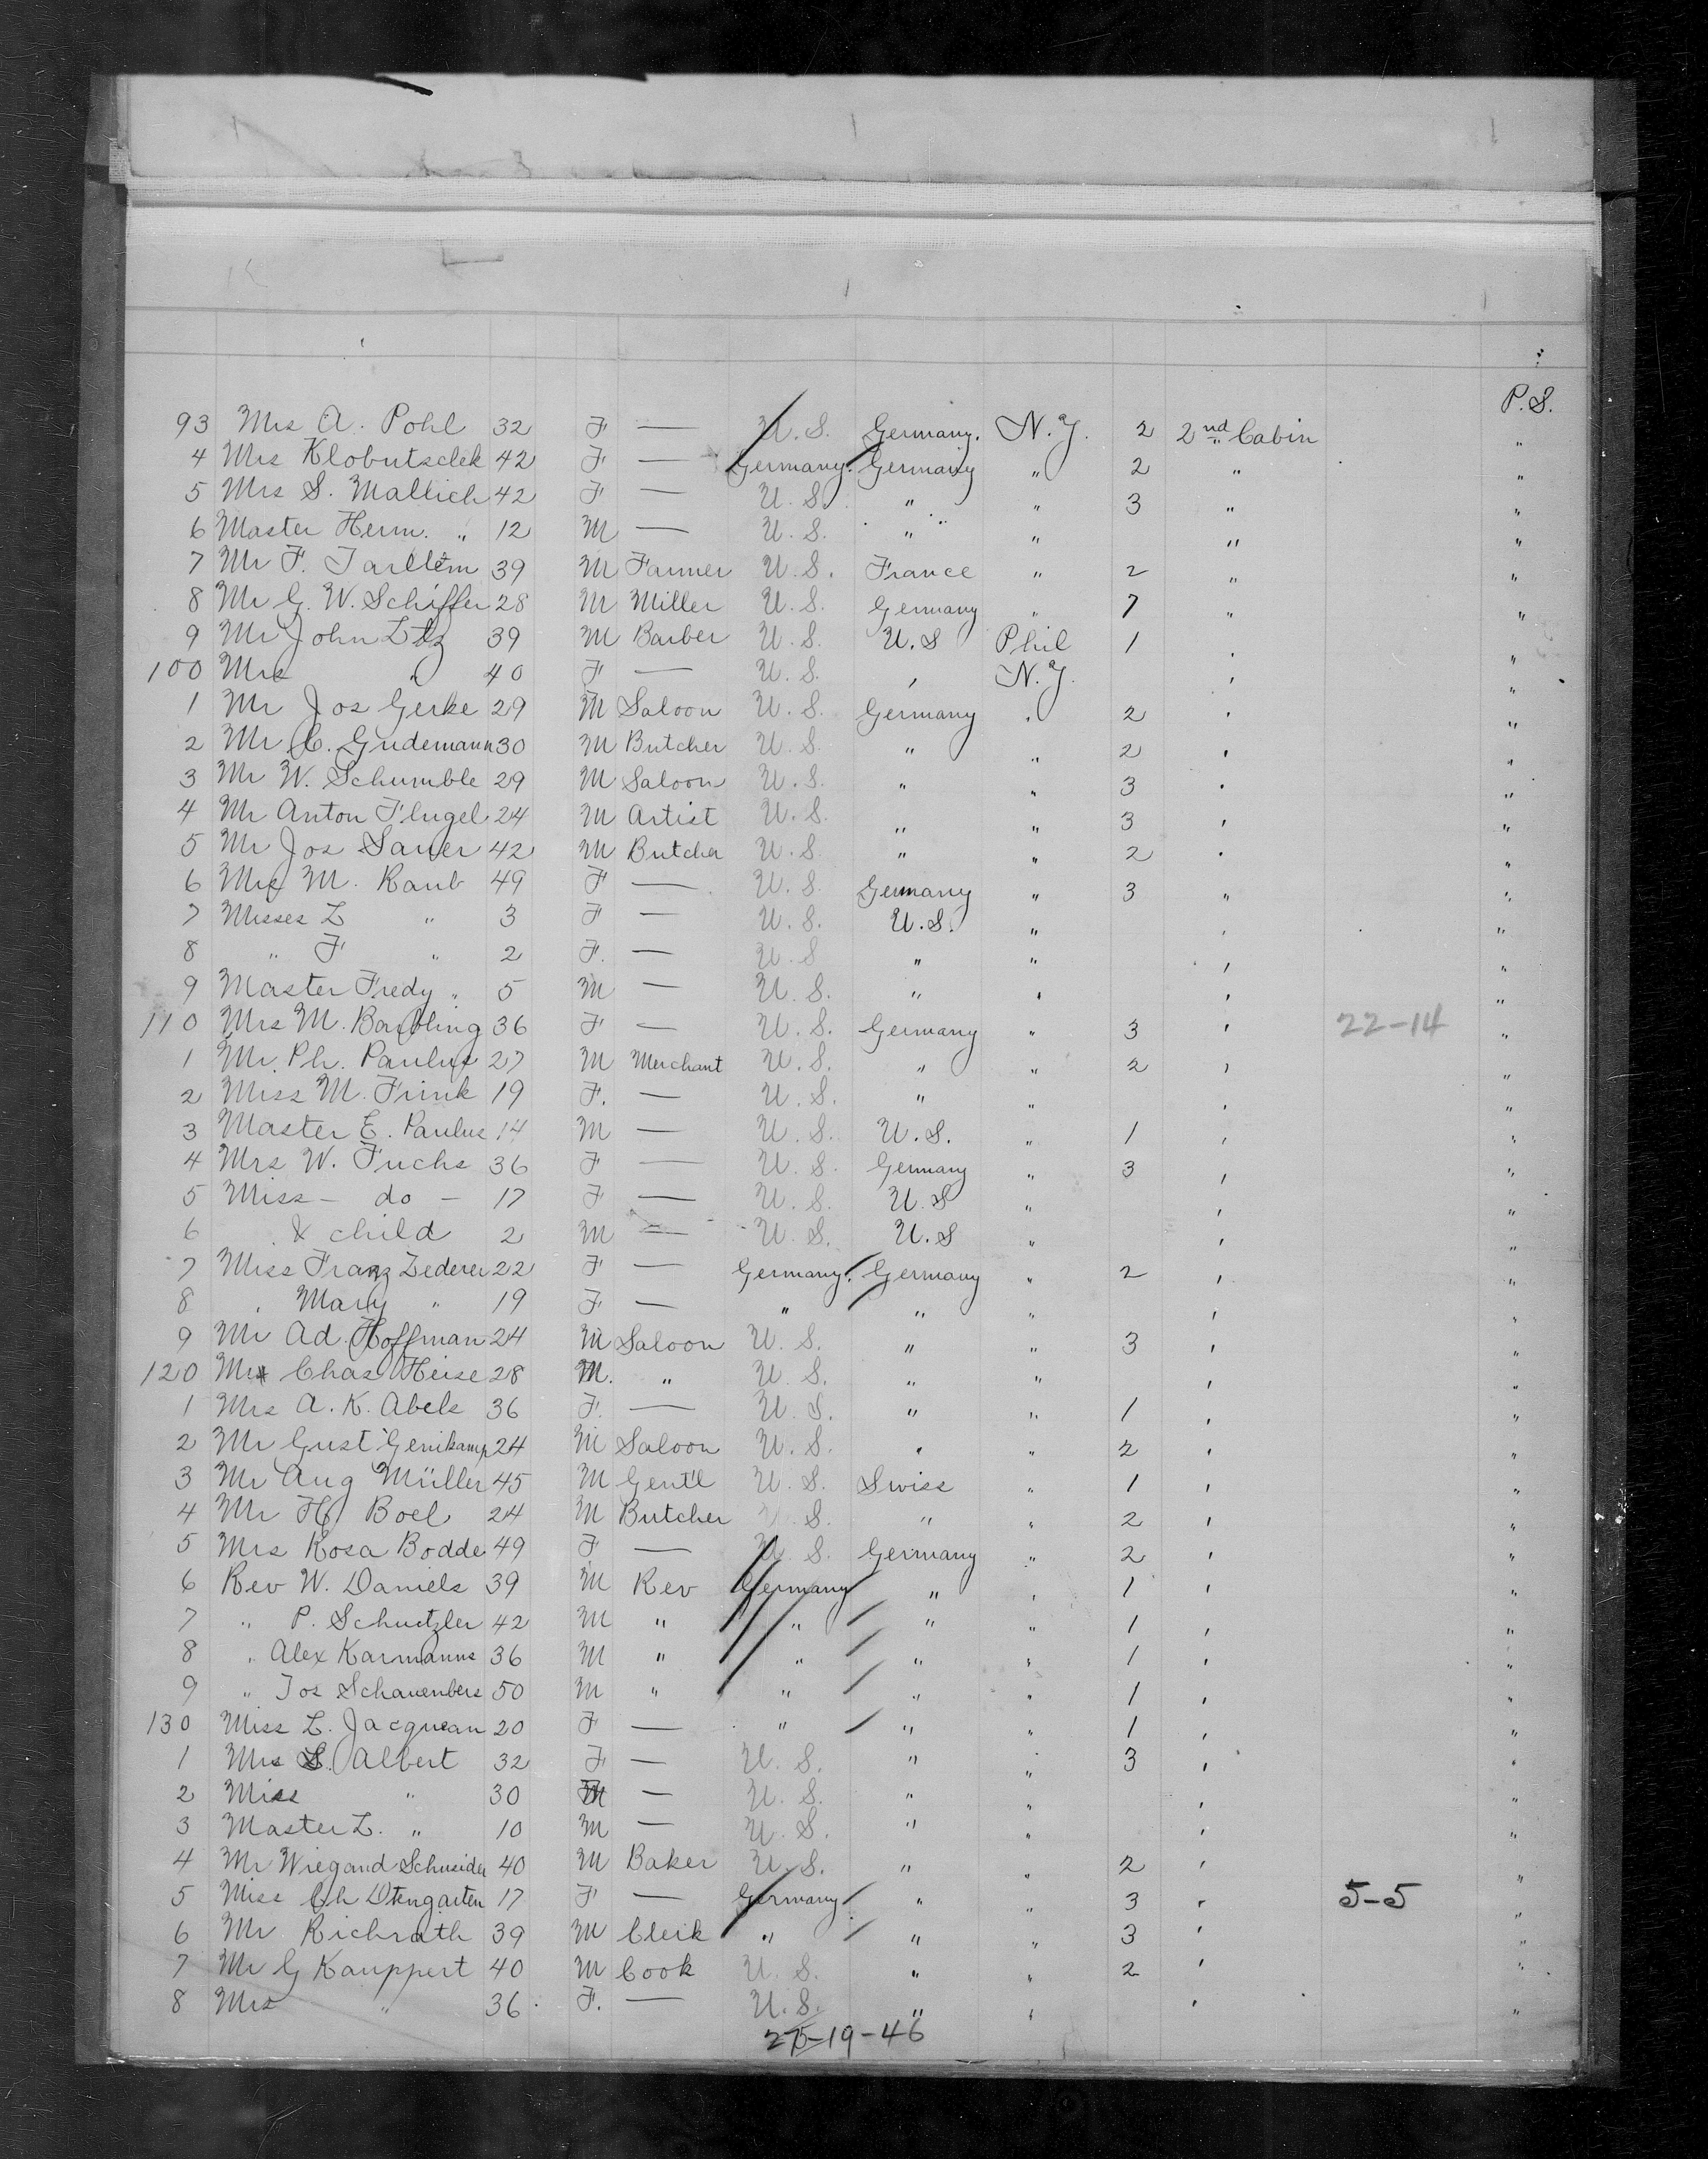 P.S.
93 Mrs A. Pohl 32 F — U.S. Germany. N.Y. 2 2nd Cabin "
4 Mrs Klobutschek 42 F — Germany. Germany " 2 " "
5 Mrs S. Mallich 42 F — U.S. " " 3 " "
6 Master Herm. " 12 M — U.S. " " " "
7 Mr F. 39 M Farmer U.S. France " 2 " "
8 Mr G. W. Schiffer 28 M Miller U.S. Germany " 7 " "
9 Mr John 39 M Barber U.S. U.S Phil 1 " "
100 Mrs " 40 F — U.S. " N.Y. " "
1 Mr Jos Gerke 29 M Saloon U.S. Germany " 2 " "
2 Mr C. Gudemann 30 M Butcher U.S. " " 2 " "
3 Mr W. Schumble 29 M Saloon U.S. " " 3 " "
4 Mr Anton Flugel 24 M Artist U.S. " " 3 " "
5 Mr Jos Sauer 42 M Butcher U.S. " " 2 " "
6 Mrs M. Raub 49 F — U.S. Germany " 3 " "
7 Misses L " 3 F — U.S. U.S. " " "
8 " F " 2 F. — U.S " " " "
9 Master Fredy " 5 M — U.S. " " " "
110 Mrs M. Barbling 36 F — U.S. Germany " 3 " 22-14 "
1 Mr. Ph. Paulus 27 M Merchant U.S. " " 2 " "
2 Miss M. Frink 19 F. — U.S. " " " "
3 Master E. Paulus 14 M — U.S. U.S. " 1 " "
4 Mrs W. Fuchs 36 F — U.S. Germany " 3 " "
5 Miss - do - 17 F — U.S. U.S " " "
6 & child 2 M — U.S. U.S " " "
7 Miss Franz Lederer 22 F — Germany. Germany " 2 " "
8 " Mary " 19 F — " " " " "
9 Mr Ad. Hoffman 24 M Saloon U.S. " " 3 " "
120 Mr Chas Heise 28 M. " U.S. " " " "
1 Mrs A. K. Abels 36 F. — U.S. " " 1 " "
2 Mr Gust Genikamp 24 M Saloon U.S. " " 2 " "
3 Mr Aug Müller 45 M Gentl U.S. Swiss " 1 " "
4 Mr H Boel 24 M Butcher U.S. " " 2 " "
5 Mrs Rosa Bodde 49 F — U.S. Germany " 2 " "
6 Rev W. Daniels 39 M Rev Germany " " 1 " "
7 " P. Schuetzler 42 M " " " " 1 " "
8 " Alex Karmanns 36 M " " " " 1 " "
9 " Jos Schauenbers 50 M " " " " 1 " "
130 Miss L. Jacquean 20 F — " " " 1 " "
1 Mrs S. Albert 32 F — U.S. " " 3 " "
2 Miss " 30 — U.S. " " " "
3 Master L. " 10 M — U.S. " " " "
4 Mr Wiegand Schneider 40 M Baker U.S. " " 2 " "
5 Miss Ch 17 F — Germany " " 3 " 5-5 "
6 Mr Richrath 39 M Clerk " " " 3 " "
7 Mr G Kauppert 40 M Cook U.S. " " 2 " "
8 Mrs " 36 F. — U.S. " " " "
-19-46